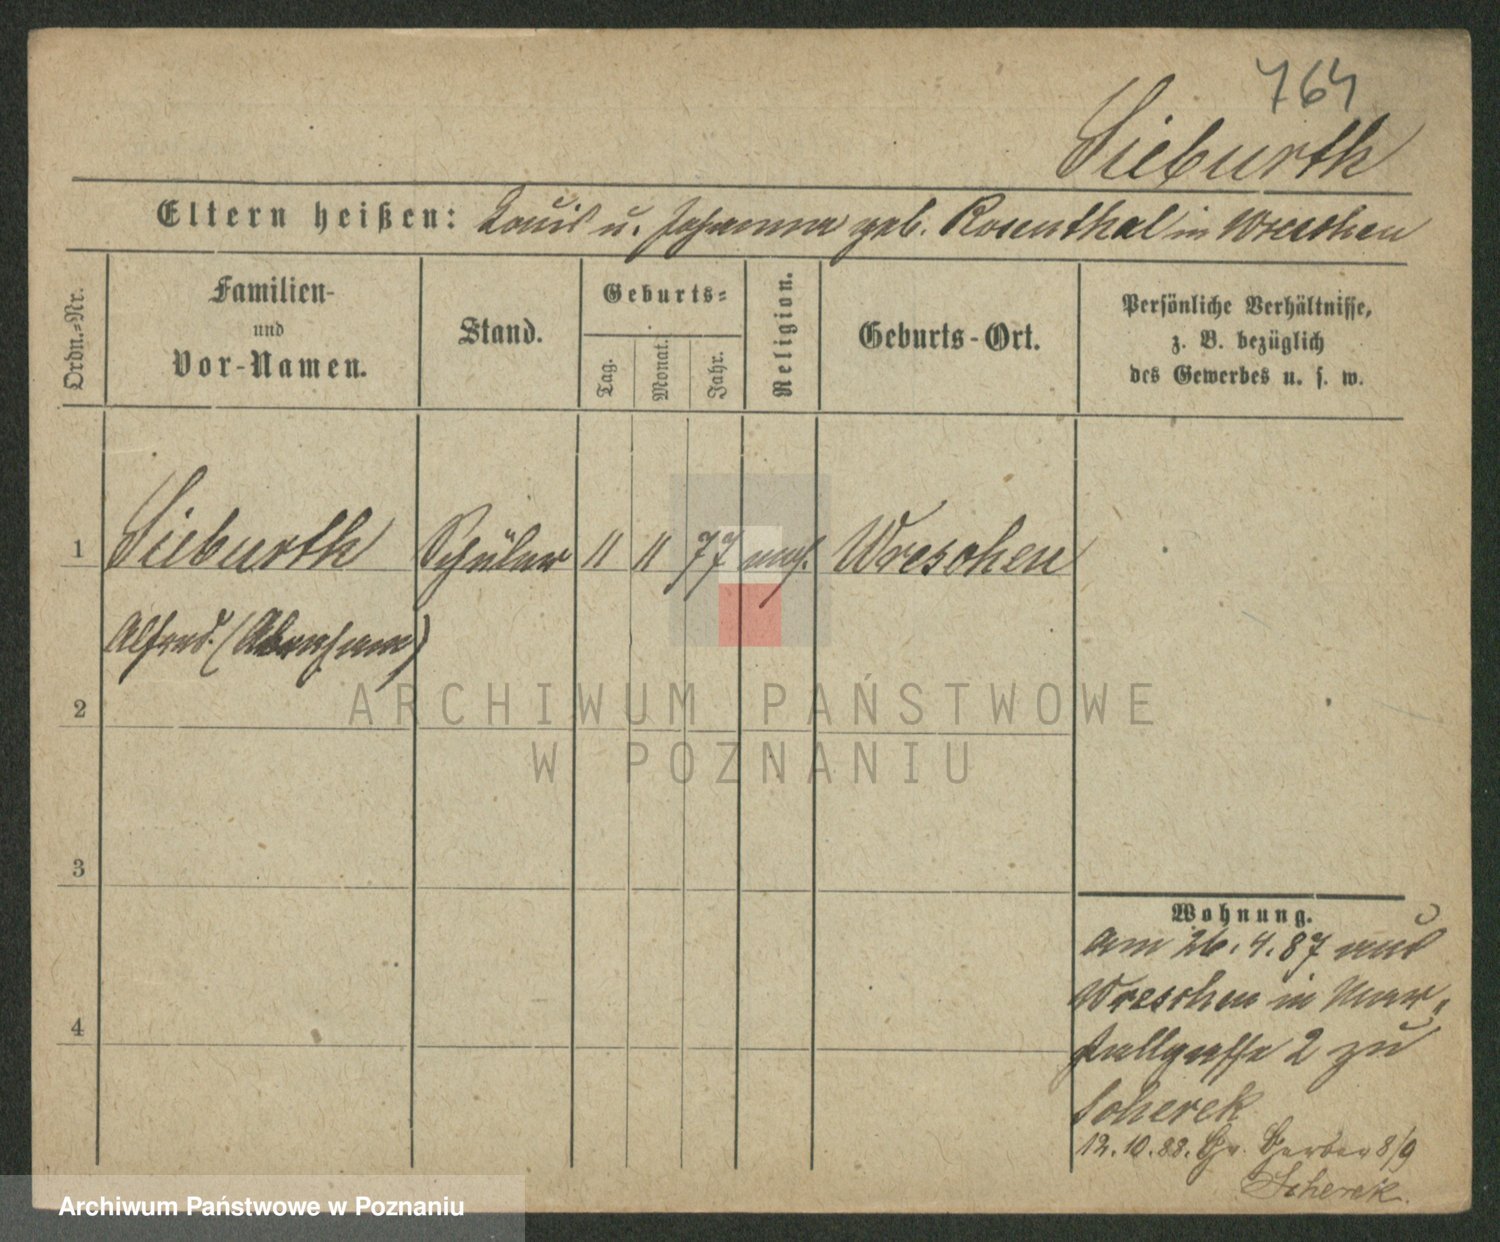 764
Sieburth
Eltern heißen: Louis u. Johanna geb. Rosenthal in Wreschen
Ordn.-Nr.
Familien-
und
Vor-Namen.
Stand.
Geburts-
Tag.
Monat.
Jahr.
Religion.
Geburts-Ort.
Persönliche Verhältnisse,
z. B. bezüglich
des Gewerbes u. s. w.
1 Sieburth Schüler 11 11 77 Wreschen
Alfred. (Abraham)
2
3
4
Wohnung.
am 26.4.87 aus
Wreschen in Mar-
stallgasse 2 zu
Scherek
12.10.88. Gr. Gerber 8/9
Scherek.
ARCHIWUM PAŃSTWOWE
W POZNANIU
Archiwum Państwowe w Poznaniu